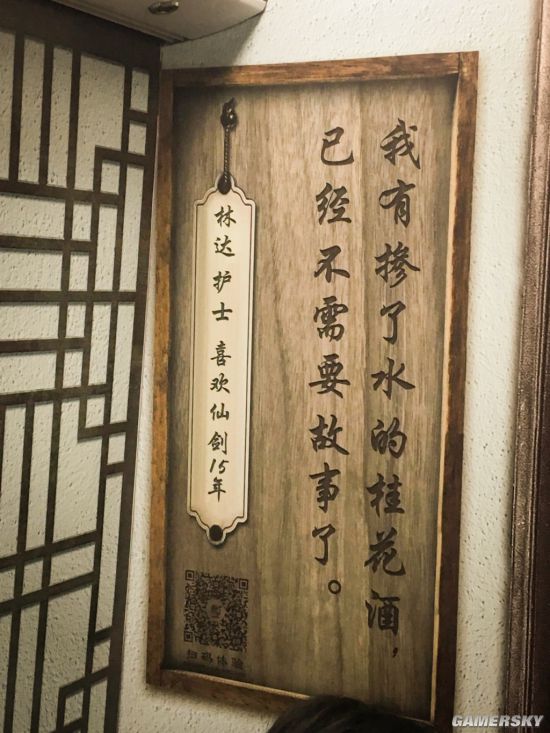 我有掺了水的桂花酒，
已经不需要故事了。
林达 护士 喜欢仙剑15年
扫码体验
GAMERSKY